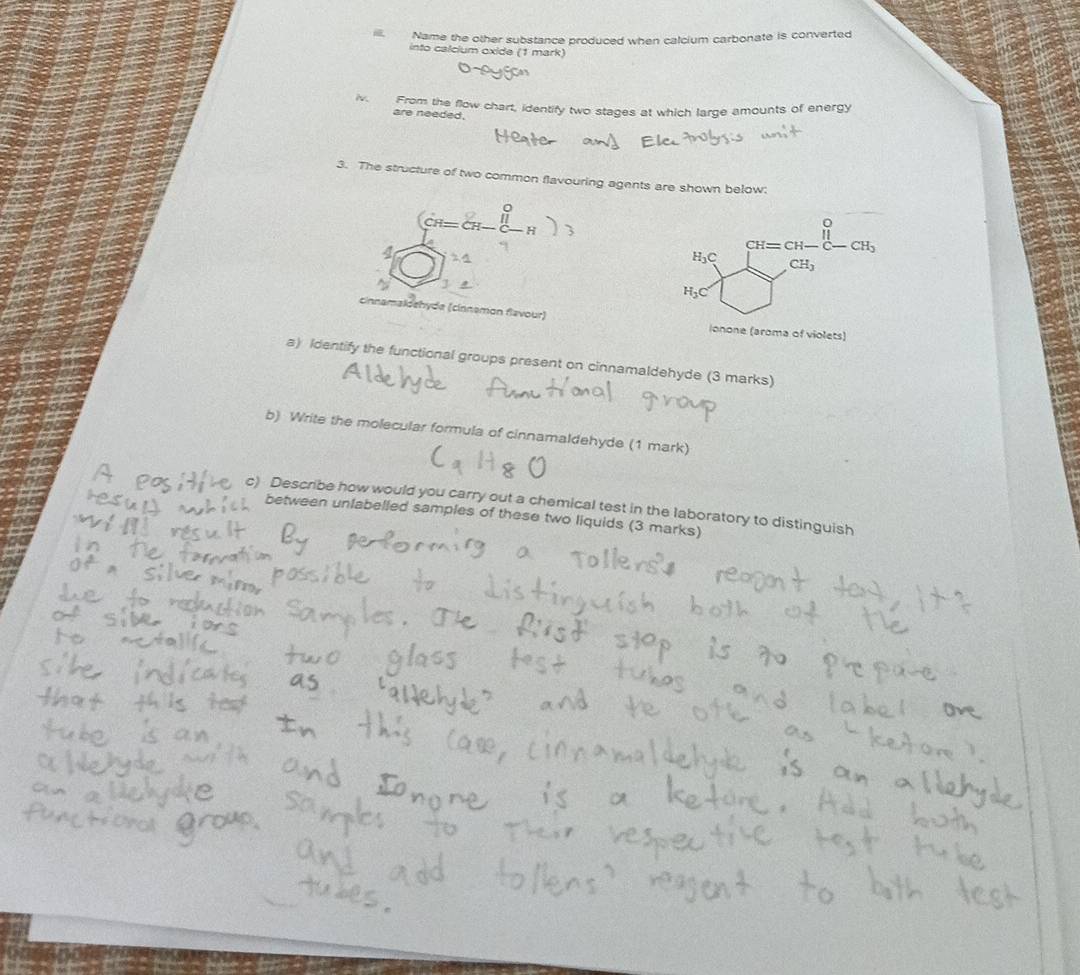 iii. Name the other substance produced when calcium carbonate is converted
into calcium oxide (1 mark)
iv. From the flow chart, identify two stages at which large amounts of energy
are needed.
Heater and Electrolysis unit
3. The structure of two common flavouring agents are shown below:
(CH=CH-C-H)3
O
cinnamaldehyde (cinnamon flavour)
O
CH=CH-C-CH₃
H₃C
CH₃
H₃C
Ionone (aroma of violets)
a) Identify the functional groups present on cinnamaldehyde (3 marks)
Aldehyde functional group
b) Write the molecular formula of cinnamaldehyde (1 mark)
C₉H₈O
c) Describe how would you carry out a chemical test in the laboratory to distinguish
between unlabelled samples of these two liquids (3 marks)
By performing a Tollens's reagent test, it's
possible to distinguish both of the
samples. The first step is to prepare
two glass test tubes and label one
as "aldehyde" and the other as "ketone".
In this case, cinnamaldehyde is an aldehyde
and Ionone is a ketone. Add both
samples to their respective test tube
and add tollens' reagent to both test
tubes.
A positive
result which
will result
in the formation
of a silver mirror
due to reduction
of silver ions
to metallic
silver indicates
that this test
tube is an
aldehyde with
an aldehyde
functional group.